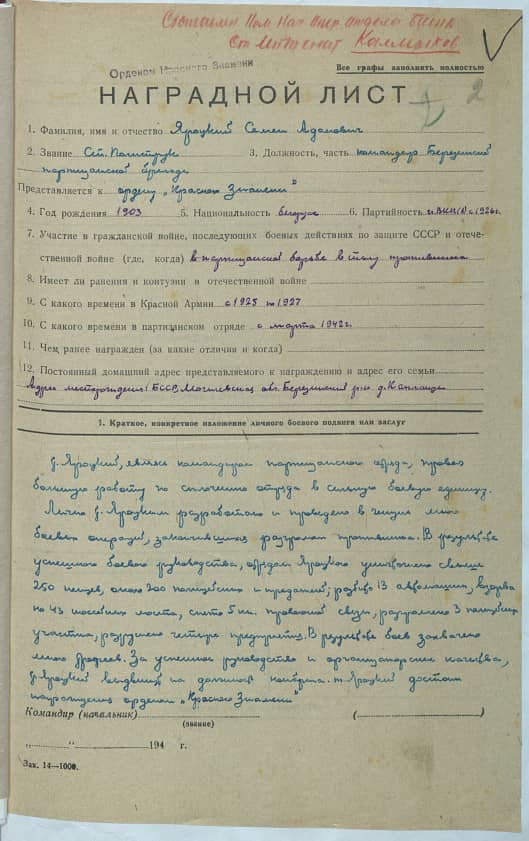 Составил Пом. Нач. Опер. отдела
Ст. Лейтенант Колмаков
Орденом Красного Знамени
Все графы заполнить полностью
НАГРАДНОЙ ЛИСТ
2
1. Фамилия, имя и отчество Яроцкий Семен Адамович
2. Звание Ст. Политрук 3. Должность, часть командир Березинской
партизанской бригады
Представляется к ордену „Красного Знамени“
4. Год рождения 1903 5. Национальность белорус 6. Партийность ч. ВКП(б) с 1926 г.
7. Участие в гражданской войне, последующих боевых действиях по защите СССР и отече-
ственной войне (где, когда) в партизанской борьбе в тылу противника
8. Имеет ли ранения и контузии в отечественной войне
9. С какого времени в Красной Армии с 1925 по 1927
10. С какого времени в партизанском отряде с марта 1942 г.
11. Чем ранее награжден (за какие отличия и когда)
12. Постоянный домашний адрес представляемого к награждению и адрес его семьи
Адрес месторождения: БССР, Могилевская обл. Березинский р-он д.
1. Краткое, конкретное изложение личного боевого подвига или заслуг
т. Яроцкий, являясь командиром партизанского отряда, провел
большую работу по сплочению отряда в сильную боевую единицу.
Лично т. Яроцким разработано и проведено в жизнь много
боевых операций, закончившихся разгромом противника. В результате
успешного боевого руководства, отрядом Яроцкого уничтожено свыше
250 немцев, около 200 полицейских и предателей, разбито 13 автомашин, взорва
но 43 шоссейных моста, снято 5 км. проволочной связи, разгромлено 3 полицейских
участка, разрушено четыре предприятия. В результате боев захвачено
много трофеев. За успешное руководство и организаторские качества,
т. Яроцкий выдвинут на должность комбрига. т. Яроцкий достоин
награждения орденом „Красного Знамени“
Командир (начальник)
(звание)
( )
„ “ 194 г.
Зак. 14—1000.